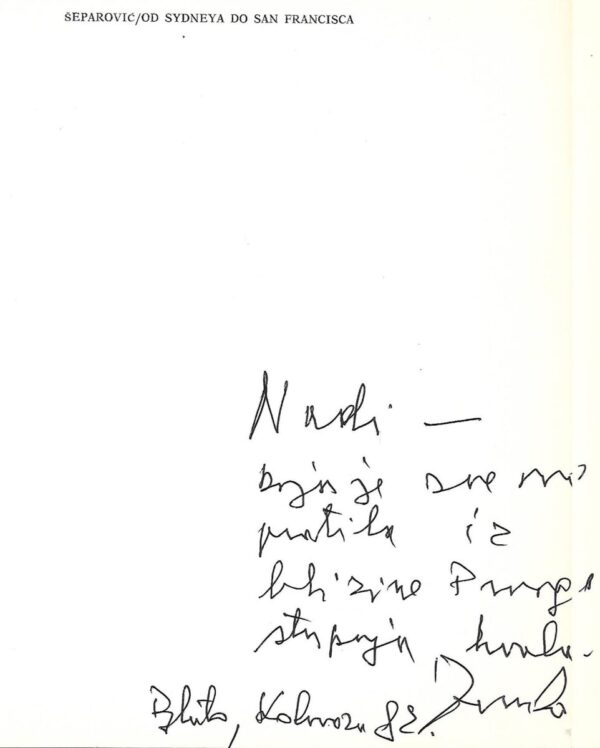 ŠEPAROVIĆ/OD SYDNEYA DO SAN FRANCISCA
Nadi —
koja je sve
pratila iz
blizine Prvoga
stupnja hvala.
Blato, Kolovoza 82. Zvonko